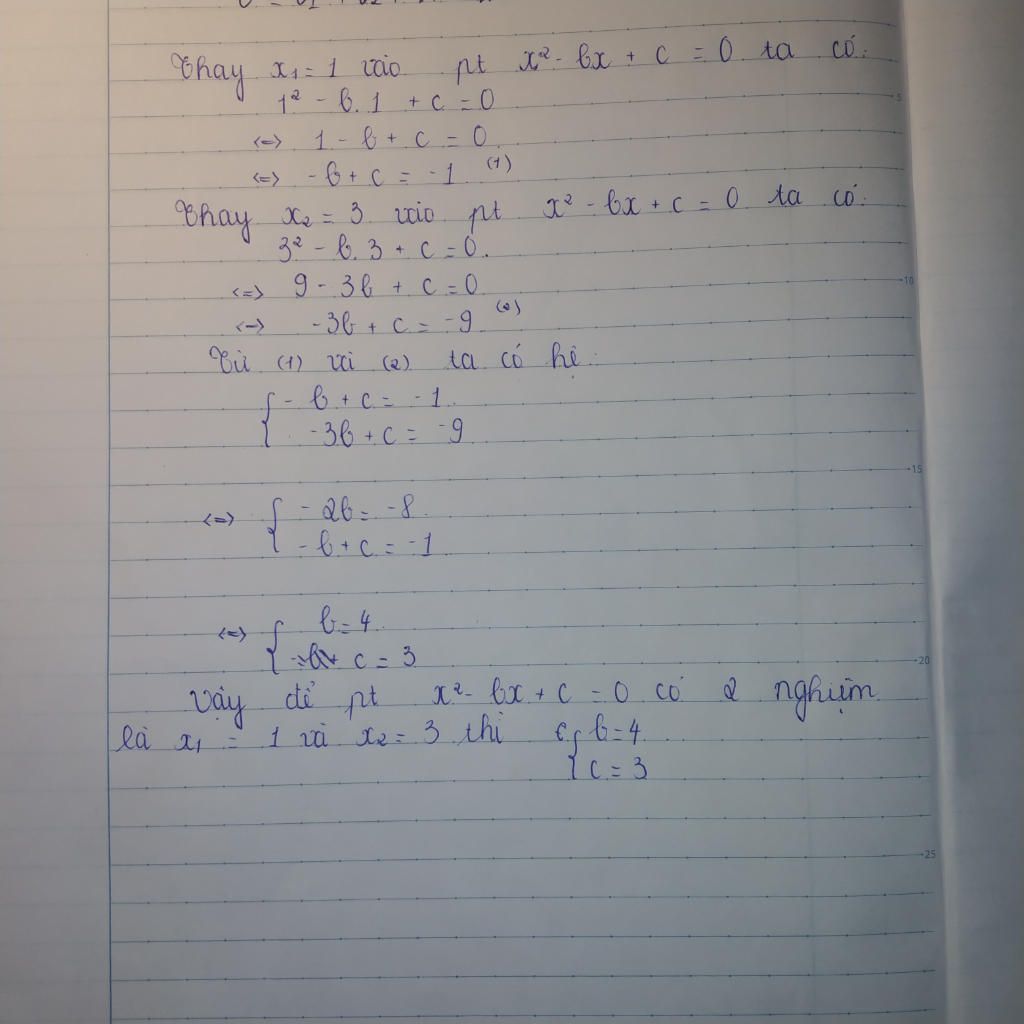 Thay x₁ = 1 vào pt x² - bx + c = 0 ta có:
1² - b.1 + c = 0
<=> 1 - b + c = 0
<=> -b + c = -1 (1)
Thay x₂ = 3 vào pt x² - bx + c = 0 ta có:
3² - b.3 + c = 0.
<=> 9 - 3b + c = 0
<=> -3b + c = -9 (2)
Từ (1) và (2) ta có hệ:
{ - b + c = -1
-3b + c = -9
<=> { -2b = -8
-b + c = -1
<=> { b = 4
c = 3
Vậy để pt x² - bx + c = 0 có 2 nghiệm
là x₁ = 1 và x₂ = 3 thì { b = 4
c = 3
5
10
15
20
25